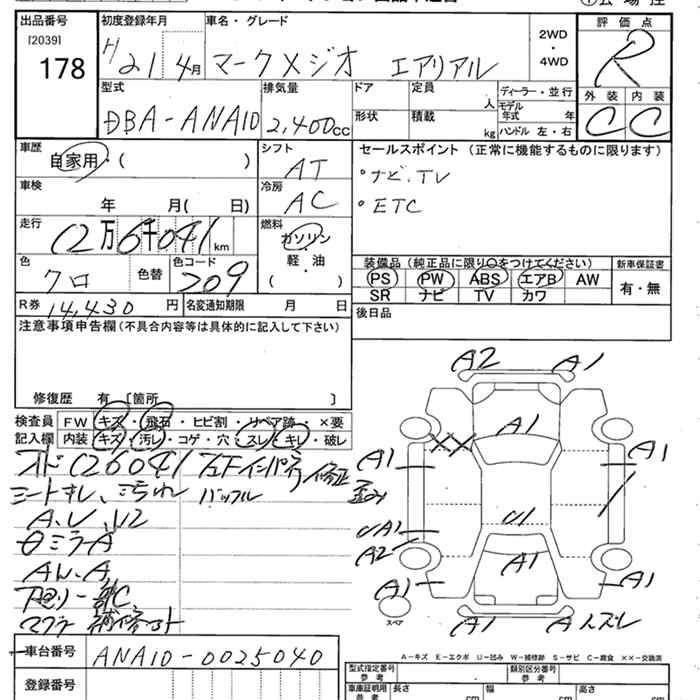 出品番号
[2039]
178
初度登録年月
H21 4月
車名・グレード
マークXジオ エアリアル
2WD
・
4WD
評価点
R
外装 内装
C C
型式
DBA-ANA10
排気量
2,400cc
ドア
形状
定員
人
積載
kg
ディーラー・並行
モデル
年式 年
ハンドル 左・右
車歴
自家用・( )
シフト
AT
セールスポイント (正常に機能するものに限ります)
・ナビ、TV
・ETC
車検
年 月( 日)
冷房
AC
走行
12万6千041km
燃料
ガソリン
・
軽・油
( )
色
クロ
色替
色コード
209
装備品 (純正品に限り○をつけてください)
PS PW ABS エアB AW
SR ナビ TV カワ
新車保証書
有・無
R券 14,430円
名変通知期限 月 日
後日品
注意事項申告欄(不具合内容等は具体的に記入して下さい)
修復歴 有 [箇所 ]
検査員
記入欄
FW キズ・飛石・ヒビ割・リペア跡・×要
内装 キズ・汚れ・コゲ・穴・スレ・キレ・破レ
126041
シートすレ、汚れ
バックル
A、U、
ミラーA
A2 A1
A1
A1 XX A1
A1
A2
U1
A1
A1 A1
A1 A
スペア
A-キズ E-エクボ U-凹み W-補修跡 S-サビ C-腐食 ××-交換済
車台番号
ANA10-0025040
登録番号
型式指定番号
参考
類別区分番号
参考
車庫証明用
参考
長さ cm 幅 cm 高さ cm